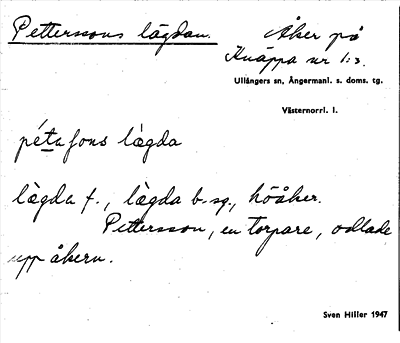 Petterssons lägdan.
Åker på
Knäppa nr 1:3.
Ullångers sn, Ångermanl. s. doms. tg.
Västernorrl. l.
pétaſons lægda
lægda f., lægda b. sg., höåker.
Pettersson, en torpare, odlade
upp åkern.
Sven Hiller 1947